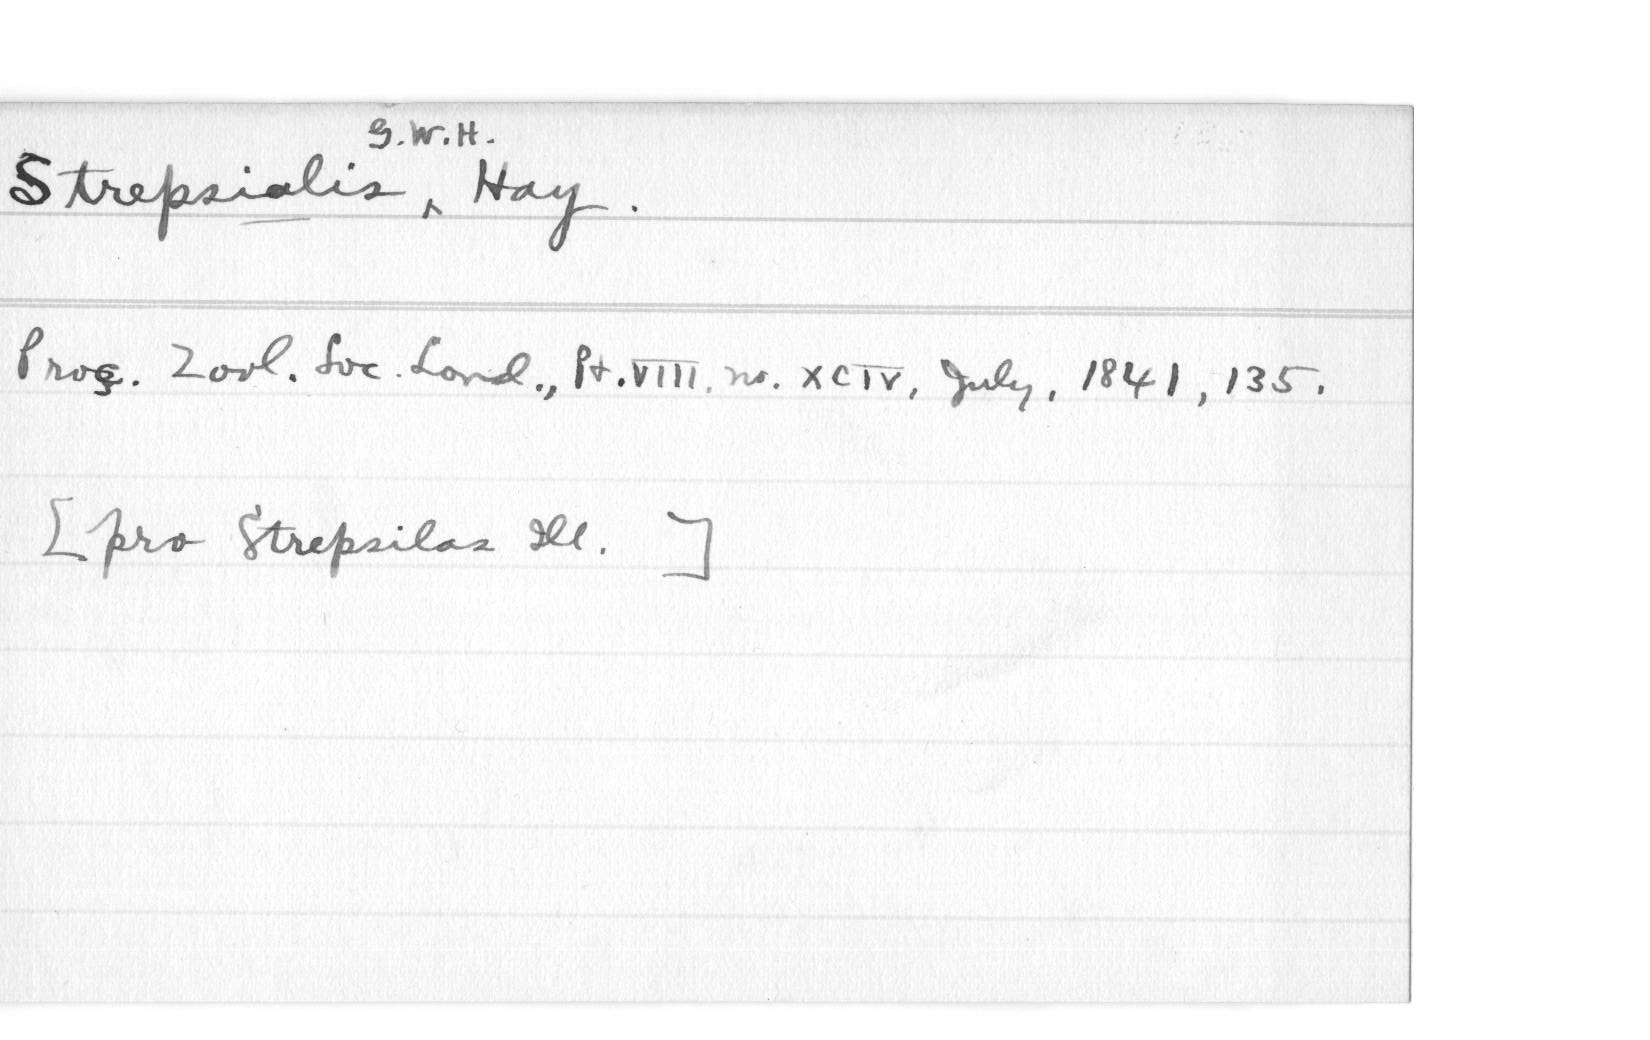 G.W.H.
Strepsialis, ‸ Hay.
Proc. Zool. Soc. Lond., Pt. VIII, no. XCIV, July, 1841, 135.
[pro Strepsilas Ill. ]